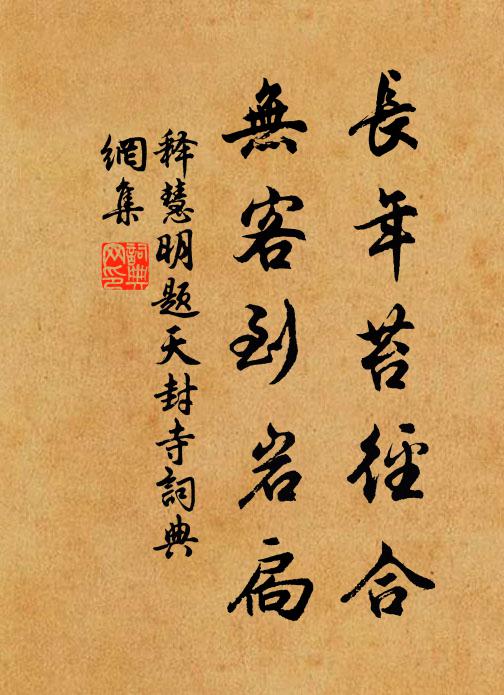 長年苔徑合
無客到岩扃
释慧明題天封寺詞典
網集
詞典网印